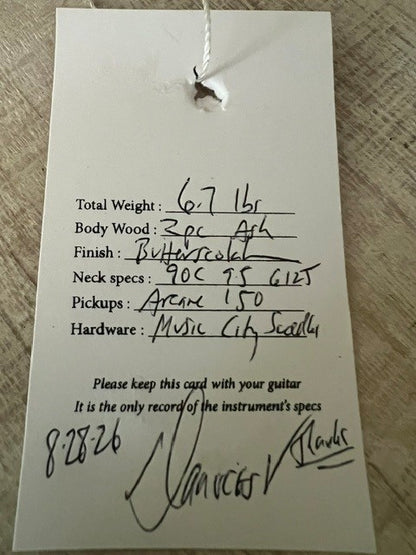 Total Weight : 6.7 lbs
Body Wood : 2pc Ash
Finish : Butterscotch
Neck specs : 90C 9.5 6125
Pickups : Arcane '50
Hardware : Music City
Please keep this card with your guitar
It is the only record of the instrument's specs
8-28-26
Thanks